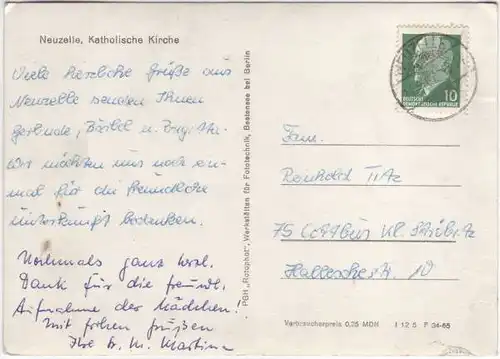 Neuzelle, Katholische Kirche
Viele herzliche Grüße aus
Neuzelle senden Ihnen
Gerlinde, Bärbel u.
Wir möchten uns noch ein-
mal für die freundliche
Unterkunft bedanken.
Nochmals ganz herzl.
Dank für die freundl.
Aufnahme der Mädchen!
Mit frohen Grüßen
Ihre Martina
PGH „Rotophot", Werkstätten für Fototechnik, Bestensee bei Berlin
10
DEUTSCHE
DEMOKRATISCHE REPUBLIK
Fam.
Reinhold Titz
75 Cottbus Kl. Ströbitz
Hallesche Str. 10
Verbraucherpreis 0,25 MDN I 12 5 F 34-65